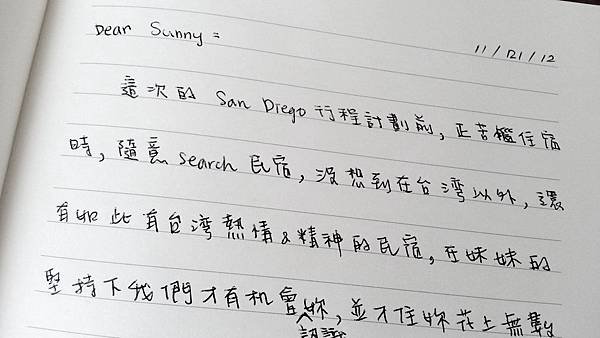 Dear Sunny :
11/21/12
這次的 San Diego 行程計劃前，正苦惱住宿
時，隨意 search 民宿，沒想到在台湾以外，還
有如此有台湾熱情&精神的民宿，在妹妹的
堅持下我們才有机會認識妳，並才住妳花上無數